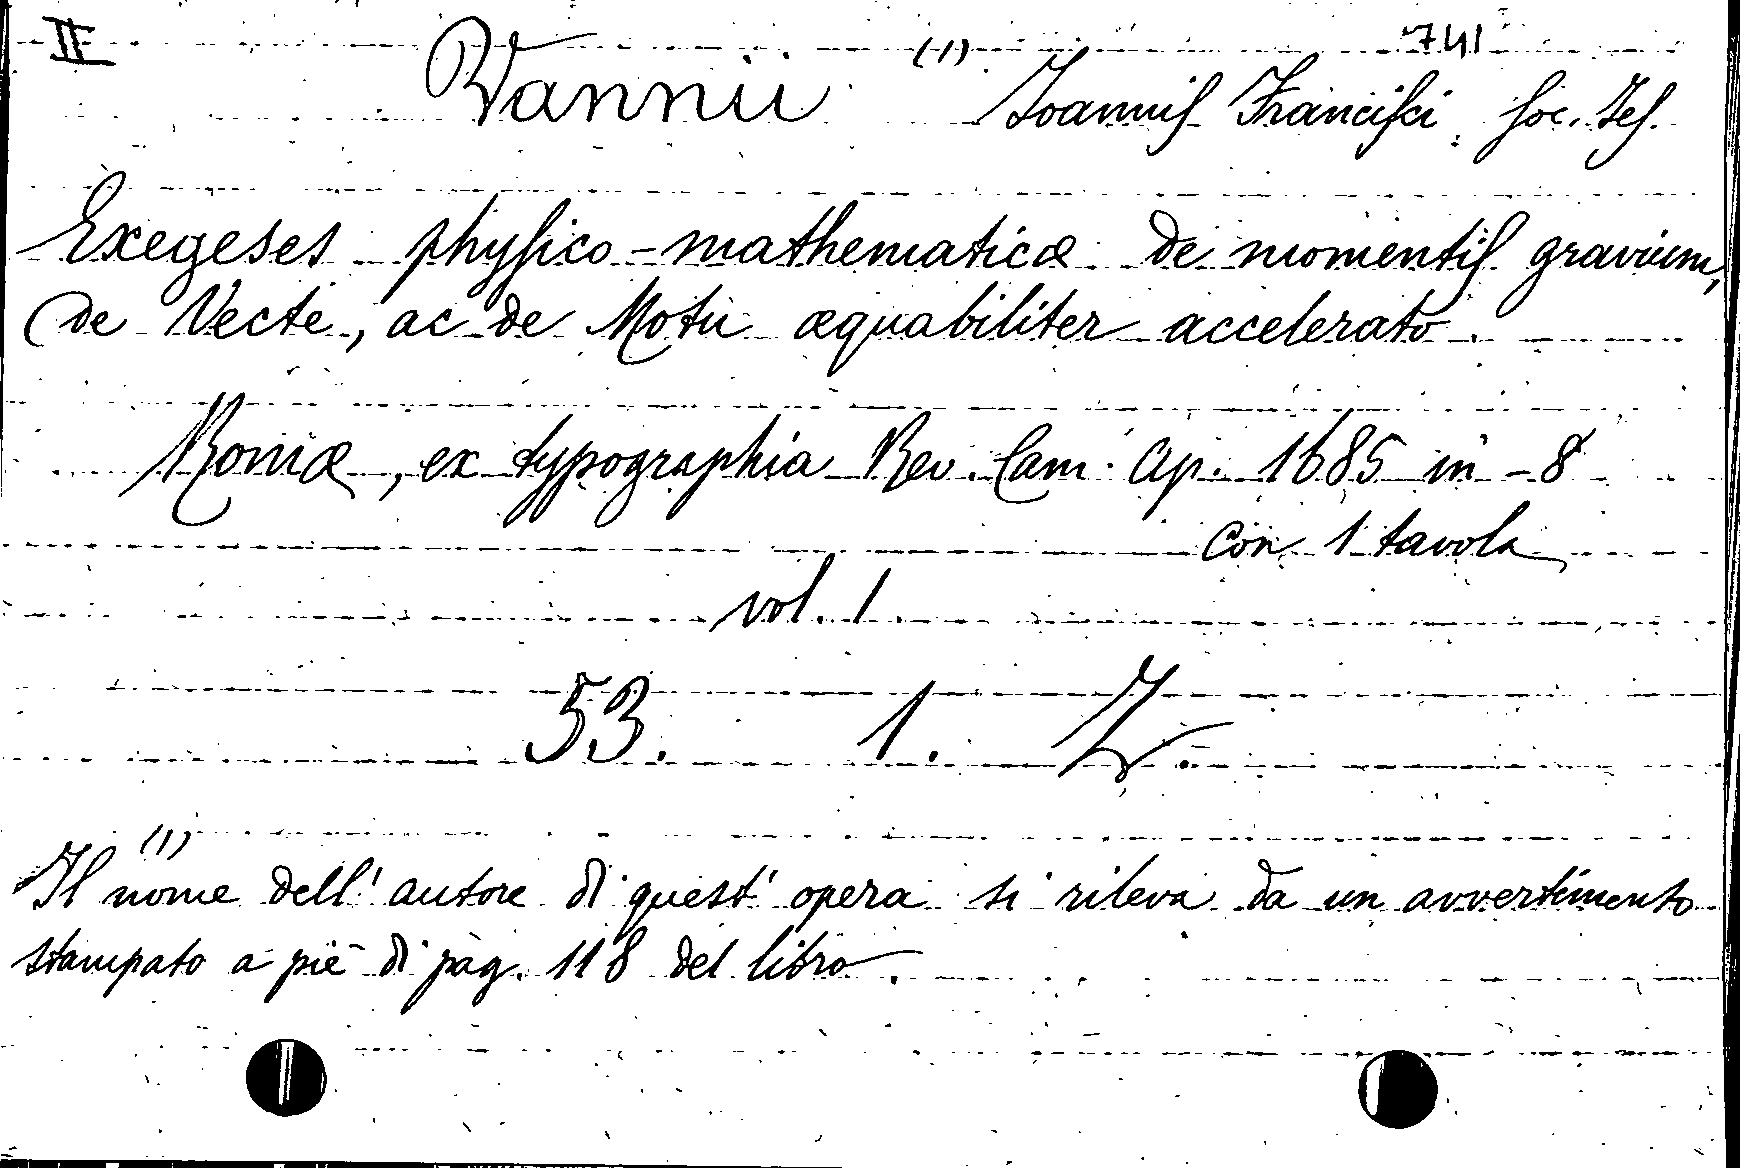 II 741
Vannii (1) Joanniſ Franciſci Soc. Jeſ.
Exegeses phyſico-mathematicæ de momentiſ gravium,
de Vecte, ac de Motu æquabiliter accelerato
Romæ, ex typographia Rev. Cam. Ap. 1685 in-8
con 1 tavola
vol. 1
53. 1. Z.
(1)
Il nome dell'autore di quest'opera si rileva da un avvertimento
stampato a piè di pag. 118 del libro.